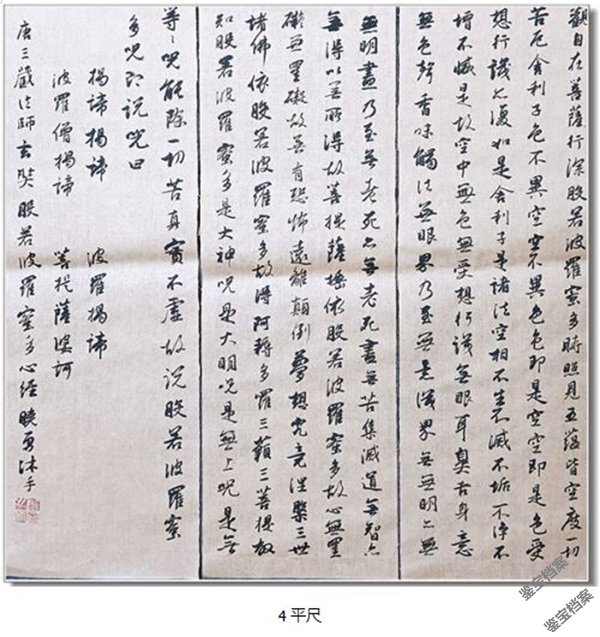 觀自在菩薩行深般若波羅蜜多時照見五蘊皆空度一切
苦厄舍利子色不異空空不異色色即是空空即是色受
想行識亦復如是舍利子是諸法空相不生不滅不垢不淨不
增不減是故空中無色無受想行識無眼耳鼻舌身意
無色聲香味觸法無眼界乃至無意識界無無明亦無
無明盡乃至無老死亦無老死盡無苦集滅道無智亦
無得以無所得故菩提薩埵依般若波羅蜜多故心無罣
礙無罣礙故無有恐怖遠離顛倒夢想究竟涅槃三世
諸佛依般若波羅蜜多故得阿耨多羅三藐三菩提故
知般若波羅蜜多是大神咒是大明咒是無上咒是無
等々咒能除一切苦真實不虛故說般若波羅蜜
多咒即說咒曰
揭諦揭諦 波羅揭諦
波羅僧揭諦 菩提薩婆訶
唐三藏法師玄奘般若波羅蜜多心經 沐手
4平尺
鉴宝档案
鉴宝档案